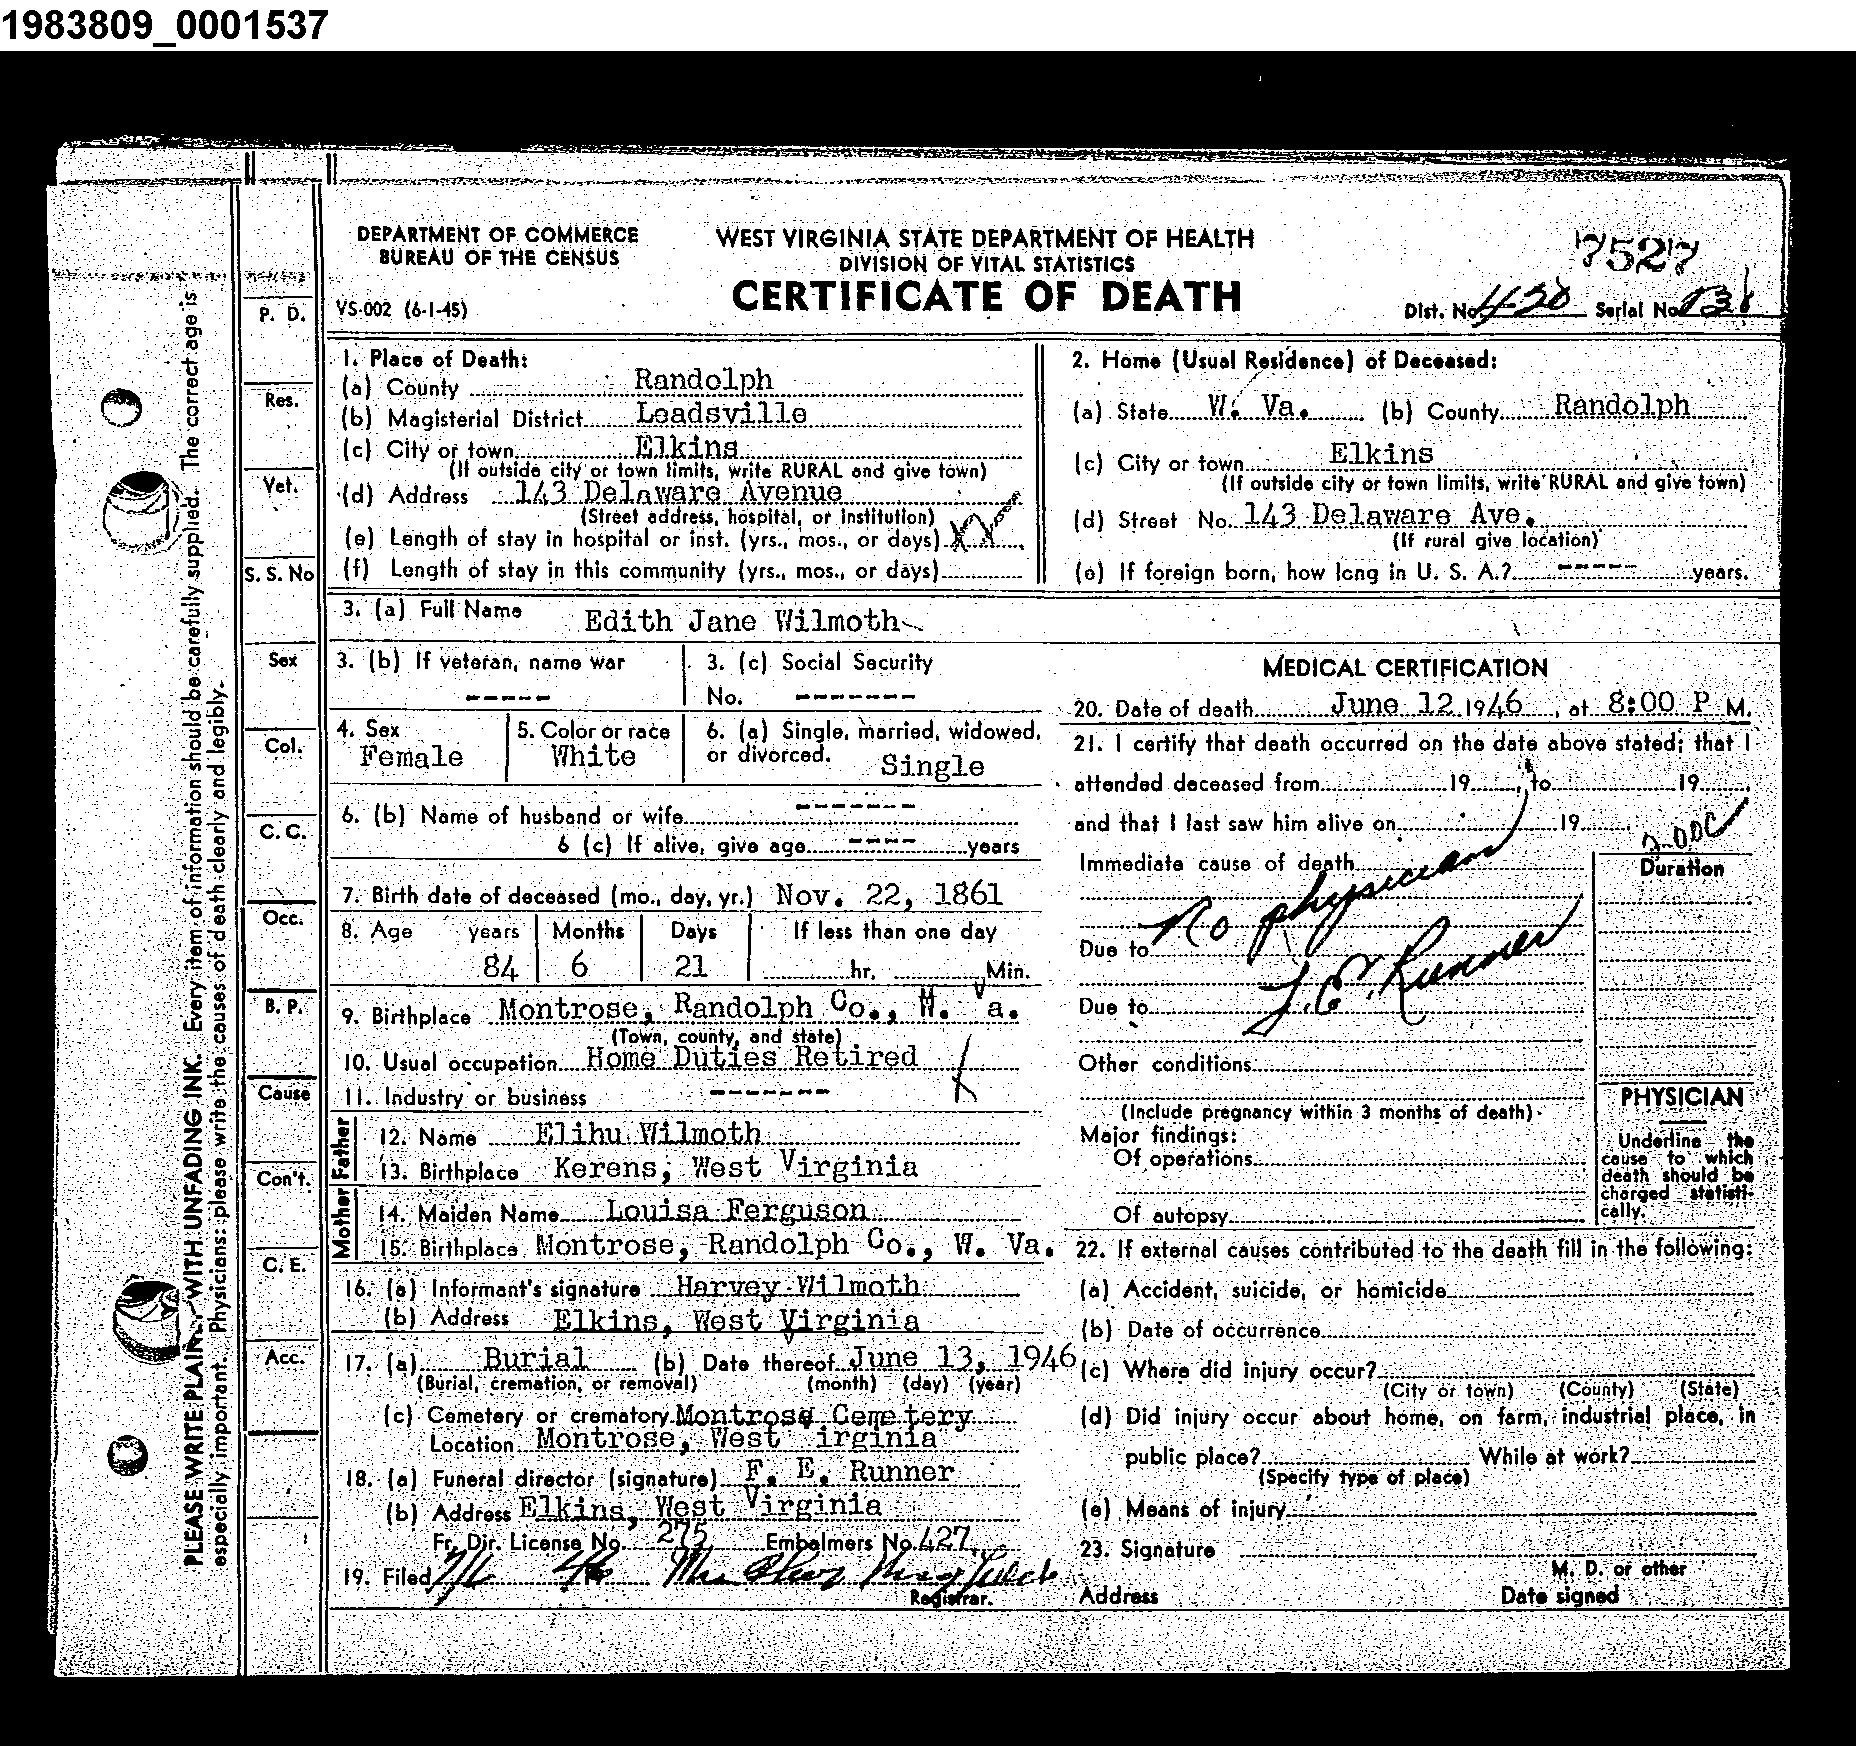 1983809_0001537
DEPARTMENT OF COMMERCE
BUREAU OF THE CENSUS
VS-002 (6-1-45)
WEST VIRGINIA STATE DEPARTMENT OF HEALTH
DIVISION OF VITAL STATISTICS
CERTIFICATE OF DEATH
7527
Dist. No. 420 Serial No.
PLEASE WRITE PLAINLY WITH UNFADING INK. Every item of information should be carefully supplied. The correct age is
especially important. Physicians: please write the causes of death clearly and legibly.
P. D.
Res.
Vet.
S. S. No
Sex
Col.
C. C.
Occ.
B. P.
Cause
Con't.
C. E.
Acc.
1. Place of Death:
(a) County Randolph
(b) Magisterial District Leadsville
(c) City or town Elkins
(If outside city or town limits, write RURAL and give town)
(d) Address 143 Delaware Avenue
(Street address, hospital, or institution)
(e) Length of stay in hospital or inst. (yrs., mos., or days)
(f) Length of stay in this community (yrs., mos., or days)
2. Home (Usual Residence) of Deceased:
(a) State W. Va. (b) County Randolph
(c) City or town Elkins
(If outside city or town limits, write RURAL and give town)
(d) Street No. 143 Delaware Ave.
(If rural give location)
(e) If foreign born, how long in U. S. A.? ----- years.
3. (a) Full Name Edith Jane Wilmoth
3. (b) If veteran, name war
-----
3. (c) Social Security
No. -------
4. Sex
Female
5. Color or race
White
6. (a) Single, married, widowed,
or divorced. Single
6. (b) Name of husband or wife -------
6 (c) If alive, give age ---- years
7. Birth date of deceased (mo., day, yr.) Nov. 22, 1861
8. Age years Months Days If less than one day
84 6 21 hr. Min.
9. Birthplace Montrose, Randolph Co., W. Va.
(Town, county, and state)
10. Usual occupation Home Duties Retired
11. Industry or business -------
Father
12. Name Elihu Wilmoth
13. Birthplace Kerens, West Virginia
Mother
14. Maiden Name Louisa Ferguson
15. Birthplace Montrose, Randolph Co., W. Va.
16. (a) Informant's signature Harvey Wilmoth
(b) Address Elkins, West Virginia
17. (a) Burial (b) Date thereof June 13, 1946
(Burial, cremation, or removal) (month) (day) (year)
(c) Cemetery or crematory Montrose Cemetery
Location Montrose, West irginia
18. (a) Funeral director (signature) F. E. Runner
(b) Address Elkins, West Virginia
Fr. Dir. License No. 275 Embalmers No. 427
19. Filed 7/6 46 Mrs
Registrar.
MEDICAL CERTIFICATION
20. Date of death June 12 1946, at 8:00 P M.
21. I certify that death occurred on the date above stated; that I
attended deceased from 19 , to 19 ,
and that I last saw him alive on 19
200C
Immediate cause of death Duration
No physician
Due to
F. E. Runner
Due to
Other conditions
(Include pregnancy within 3 months of death)
Major findings:
Of operations
Of autopsy
PHYSICIAN
Underline the
cause to which
death should be
charged statisti-
cally.
22. If external causes contributed to the death fill in the following:
(a) Accident, suicide, or homicide
(b) Date of occurrence
(c) Where did injury occur?
(City or town) (County) (State)
(d) Did injury occur about home, on farm, industrial place, in
public place? While at work?
(Specify type of place)
(e) Means of injury
23. Signature
M. D. or other
Address Date signed